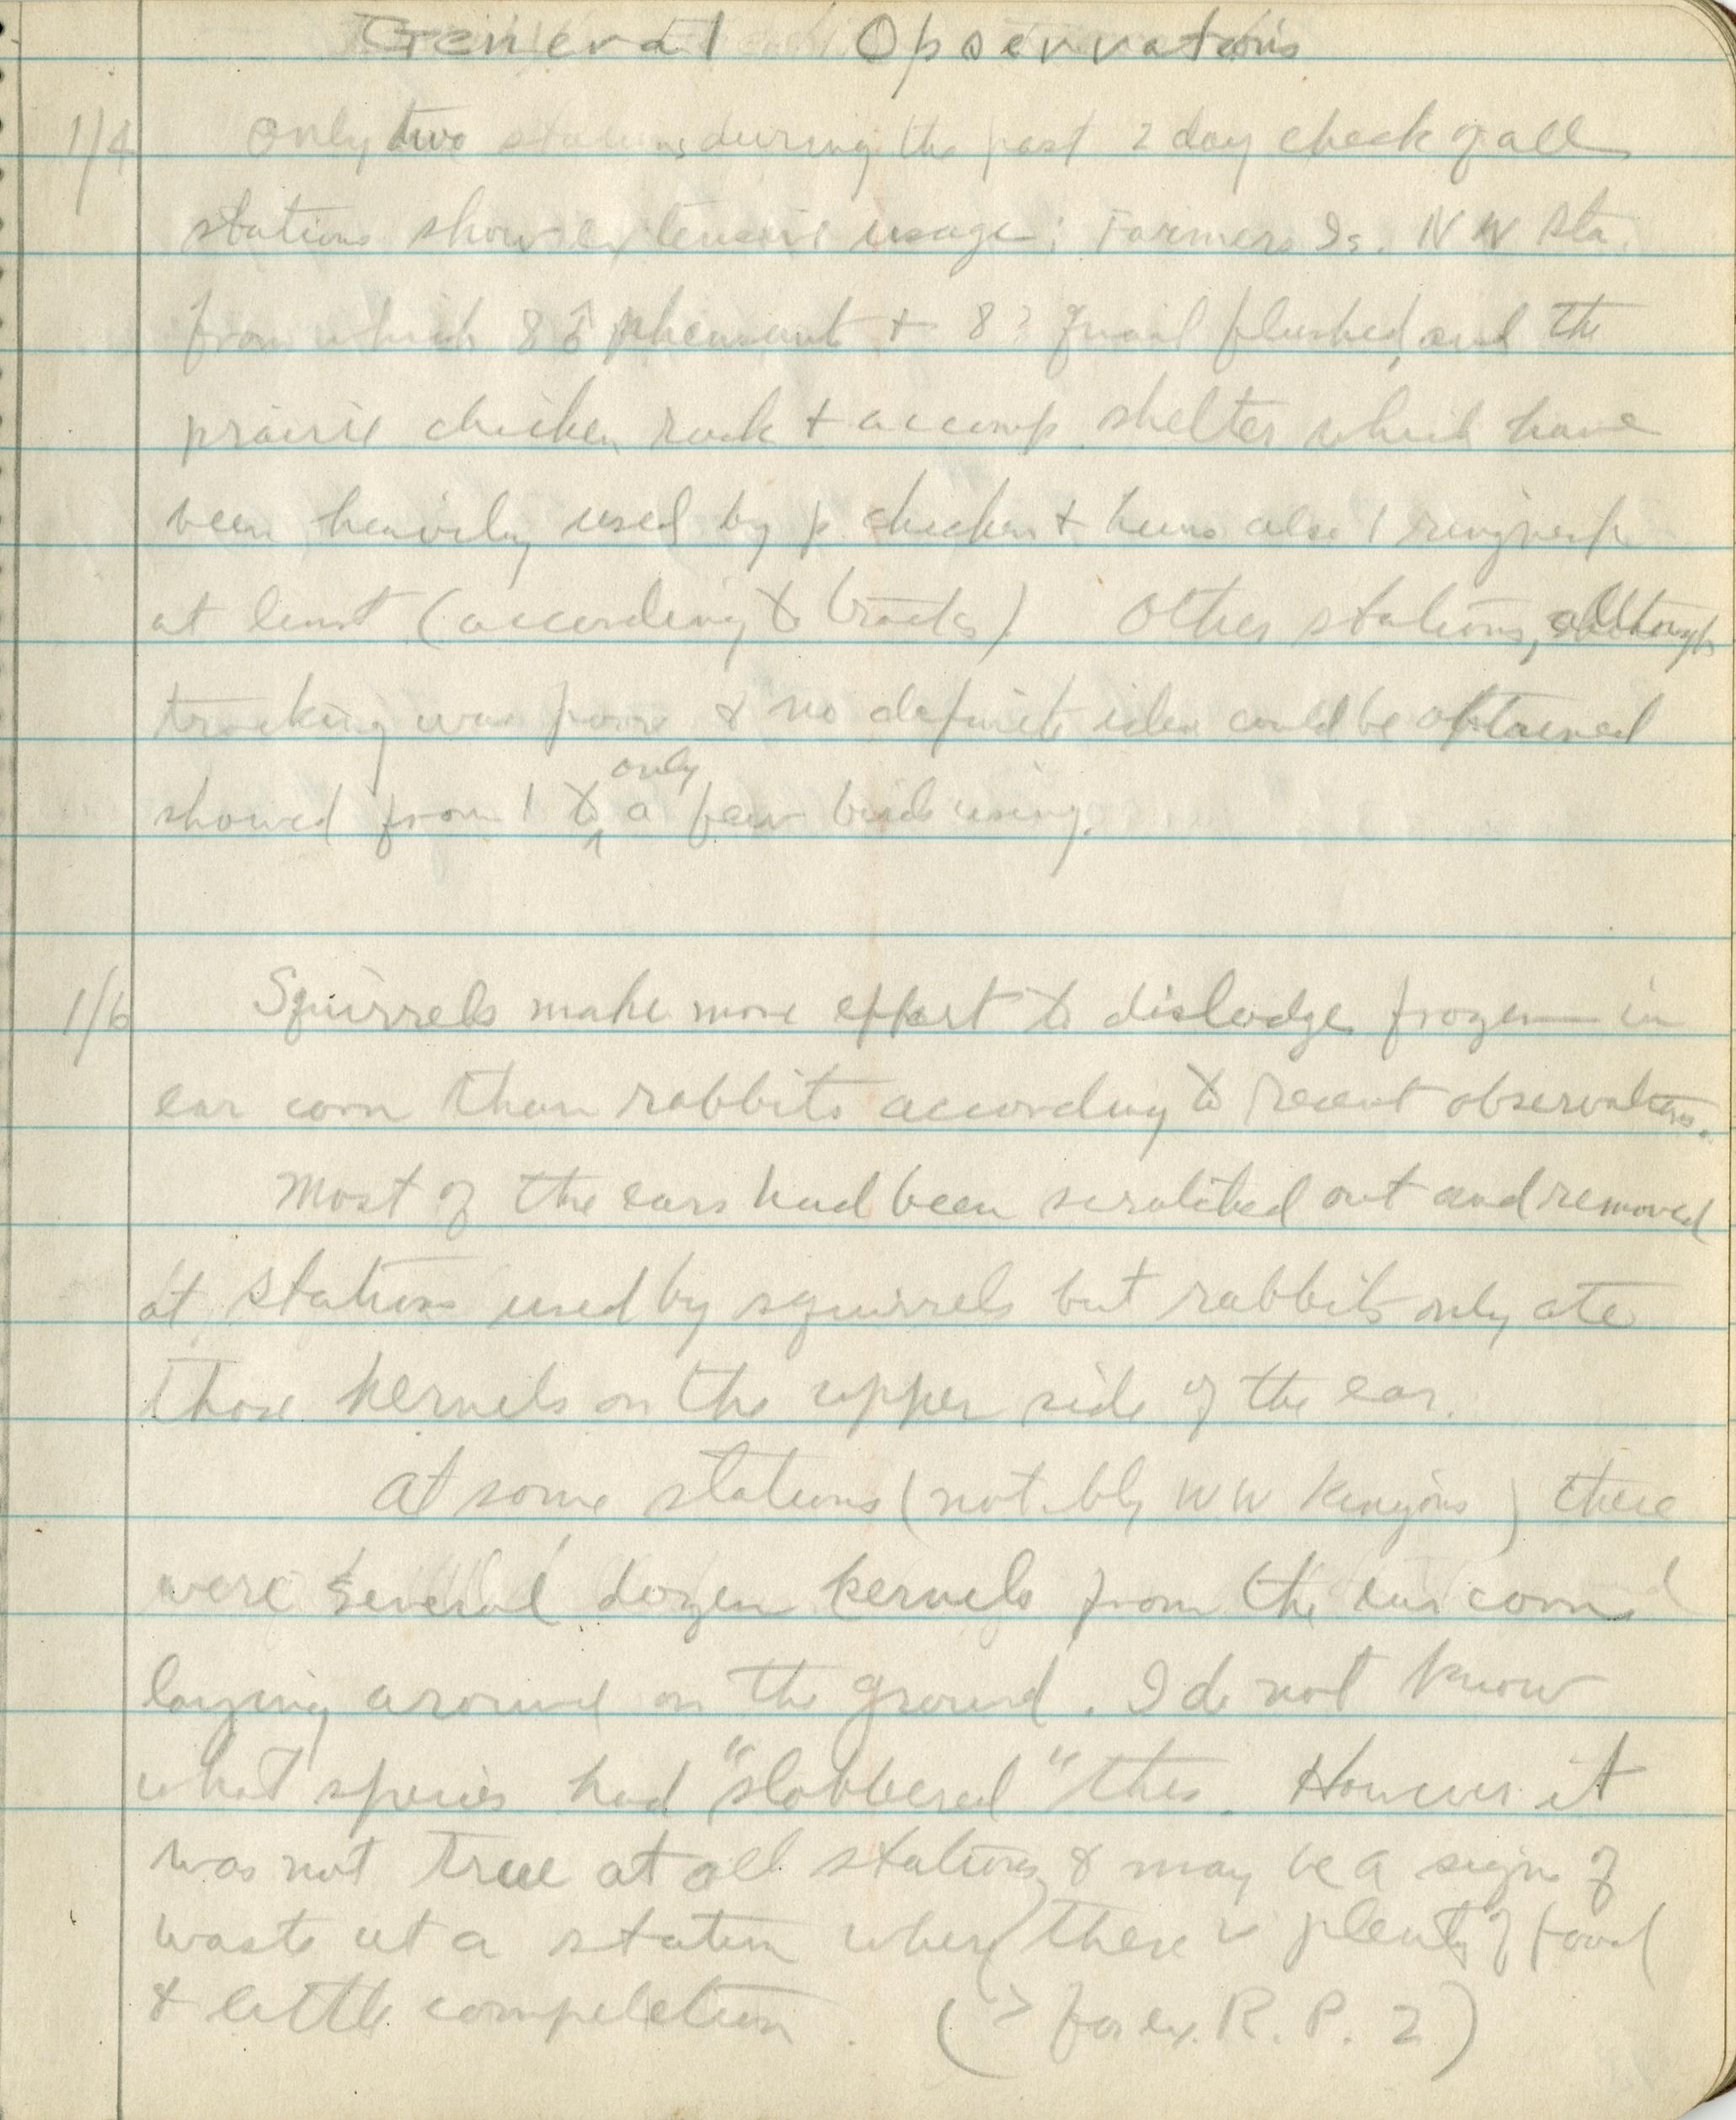 General Observations
1/4 Only two stations during the past 2 day check of all
stations show extensive usage; Farmers Is. NW Sta.
from which 8 ♂ pheasant + 8 ? quail flushed, and the
prairie chicken rack + accomp. shelter which have
been heavily used by p. chicken + huns also 1 ringneck
at least (according to tracks). Other stations, although
tracking was poor & no definite idea could be obtained
showed from 1 to only a few birds using.
1/6 Squirrels make more effort to dislodge frozen-in
ear corn than rabbits according to recent observations.
Most of the ears had been scratched out and removed
at stations used by squirrels but rabbits only ate
those kernels on the upper side of the ear.
At some stations (notably Kenyons) there
were several dozen kernels from the ear corn
laying around on the ground. I do not know
what species had "slobbered" this. However it
was not true at all stations & may be a sign of
waste at a station where there is plenty of food
& little competition. (for ex. R. P. 2)